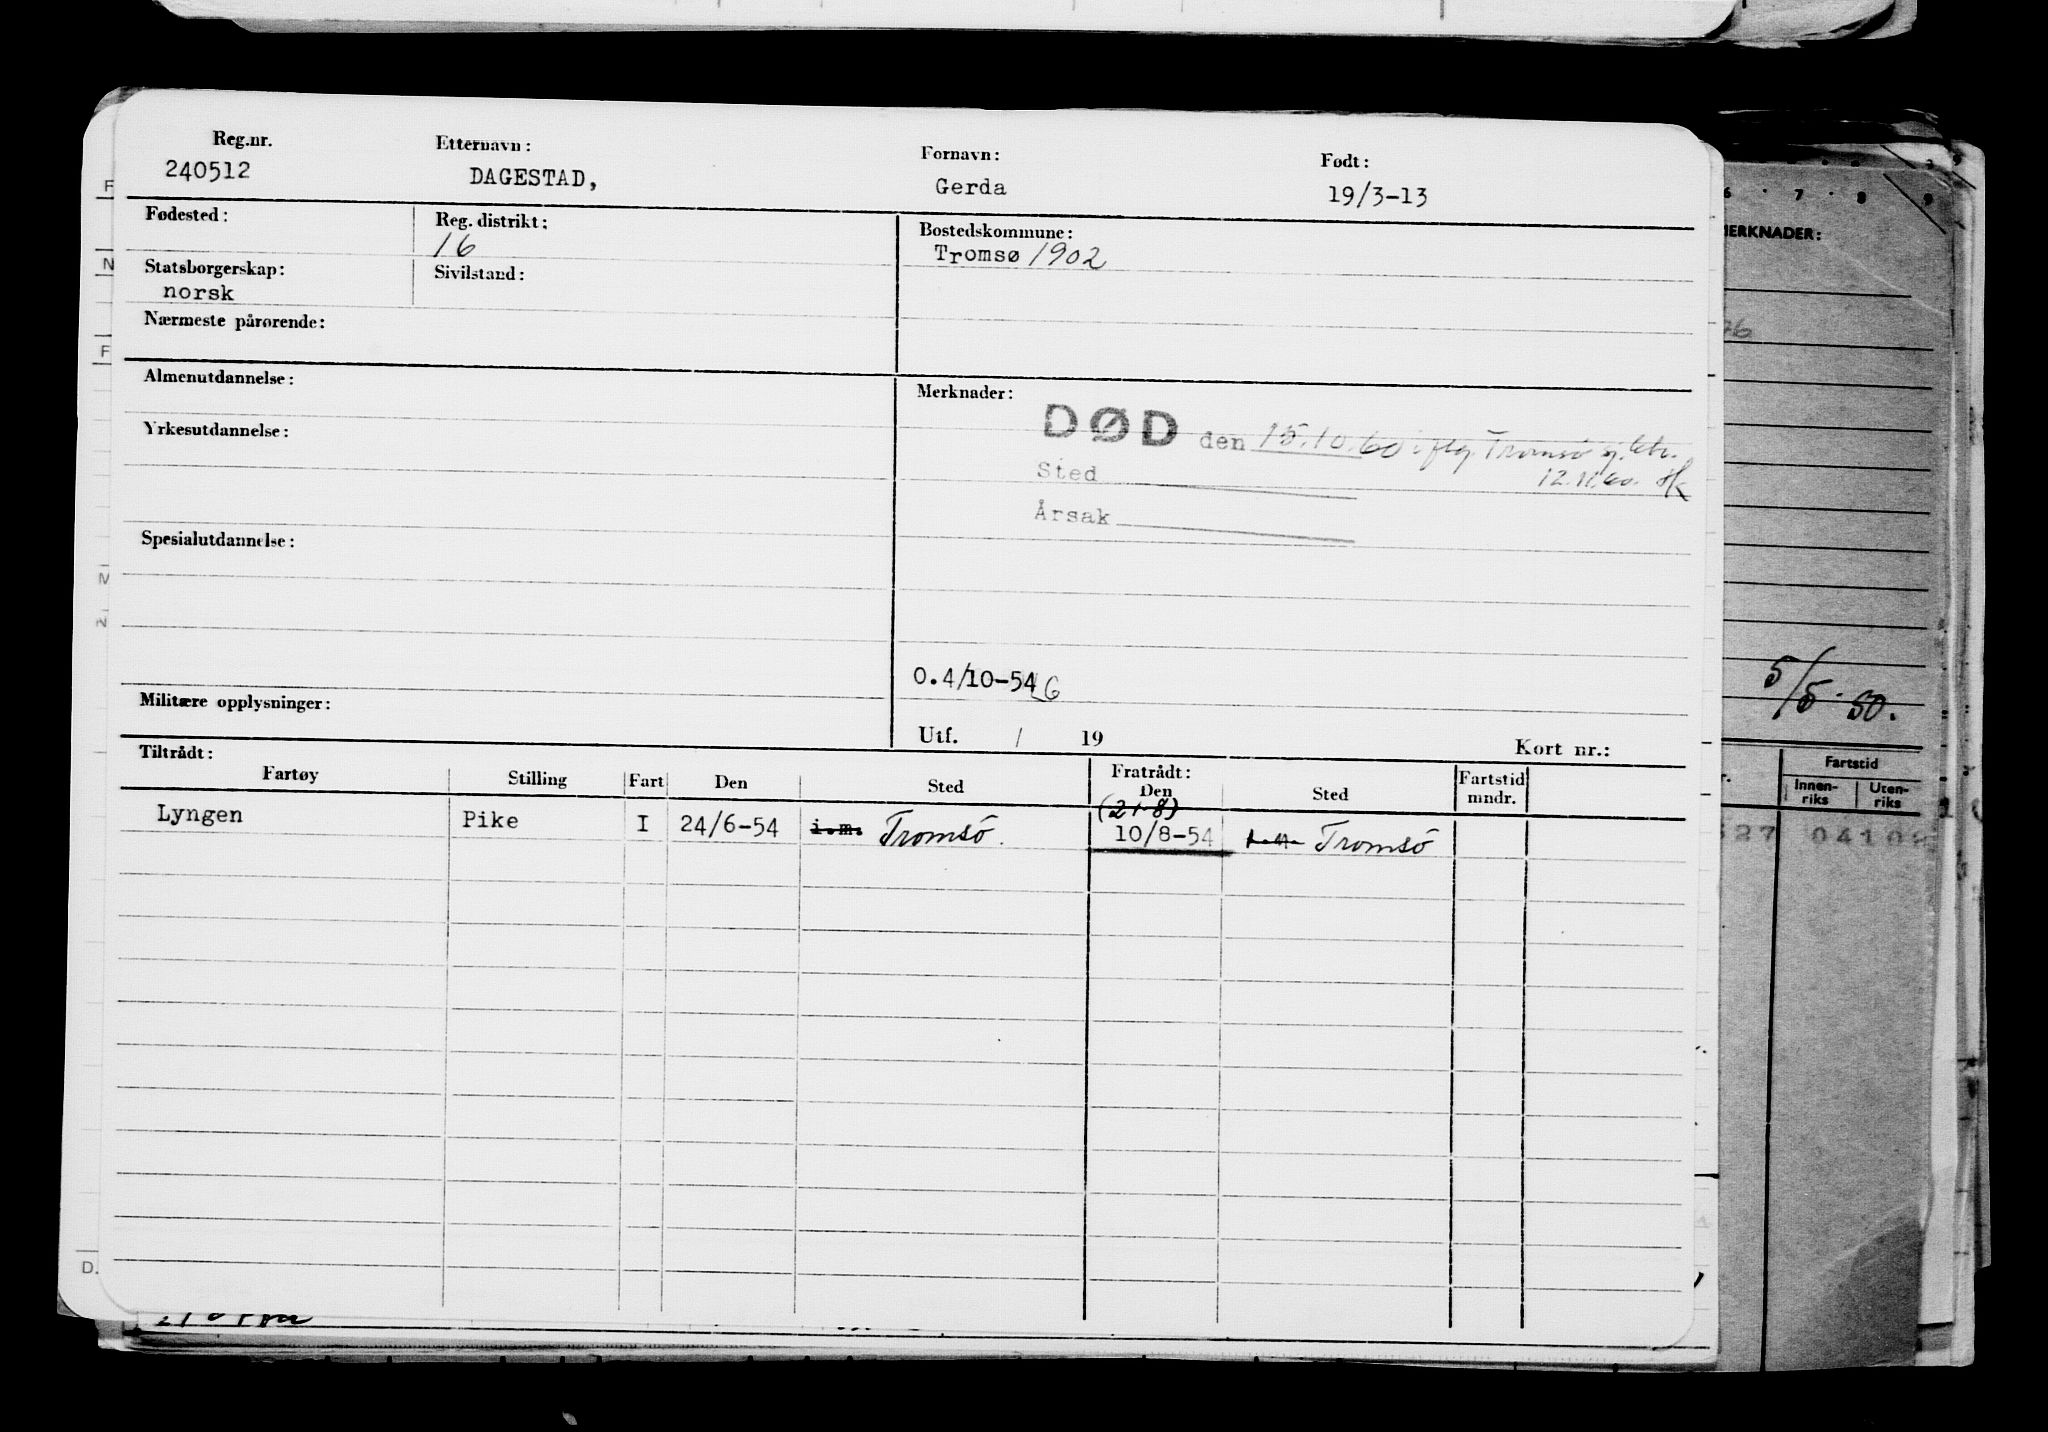 Reg.nr. Etternavn: Fornavn: Født:
240512 DAGESTAD, Gerda 19/3-13
Fødested: Reg. distrikt: Bostedskommune:
16 Tromsø 1902
Statsborgerskap: Sivilstand:
norsk
Nærmeste pårørende:
Almenutdannelse: Merknader:
DØD den 15.10.60 iflg. Tromsø
Yrkesutdannelse:
Sted 12.11.60.
Årsak
Spesialutdannelse:
0.4/10-54 6
Militære opplysninger:
Utf. / 19 Kort nr.:
Tiltrådt: Fratrådt:
Fartøy Stilling Fart Den Sted Den Sted Fartstid mndr.
(21-8)
Lyngen Pike I 24/6-54 i.m. Tromsø. 10/8-54 Tromsø
MERKNADER:
6 7 8 9
5/5-50.
Fartstid
Innen-riks Uten-riks
D.